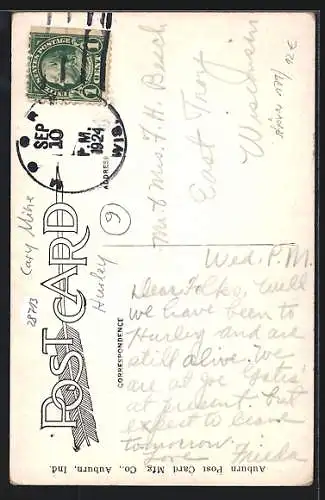 UNITED STATES POSTAGE
1 CENT 1
SEP
10
P.M.
1924
WIS.
Mr. & Mrs. F. H. Beech
East Troy
Wisconsin
12€
ADDRESS
9
Cary Mine
Hurley
28713
POST CARD
CORRESPONDENCE
Wed. P.M.
Dear Folks, Well
we have been to
Hurley and are
still alive. We
are at Joe Yates'
at present. But
expect to leave
tomorrow.
Love Frieda
Auburn Post Card Mfg. Co., Auburn, Ind.